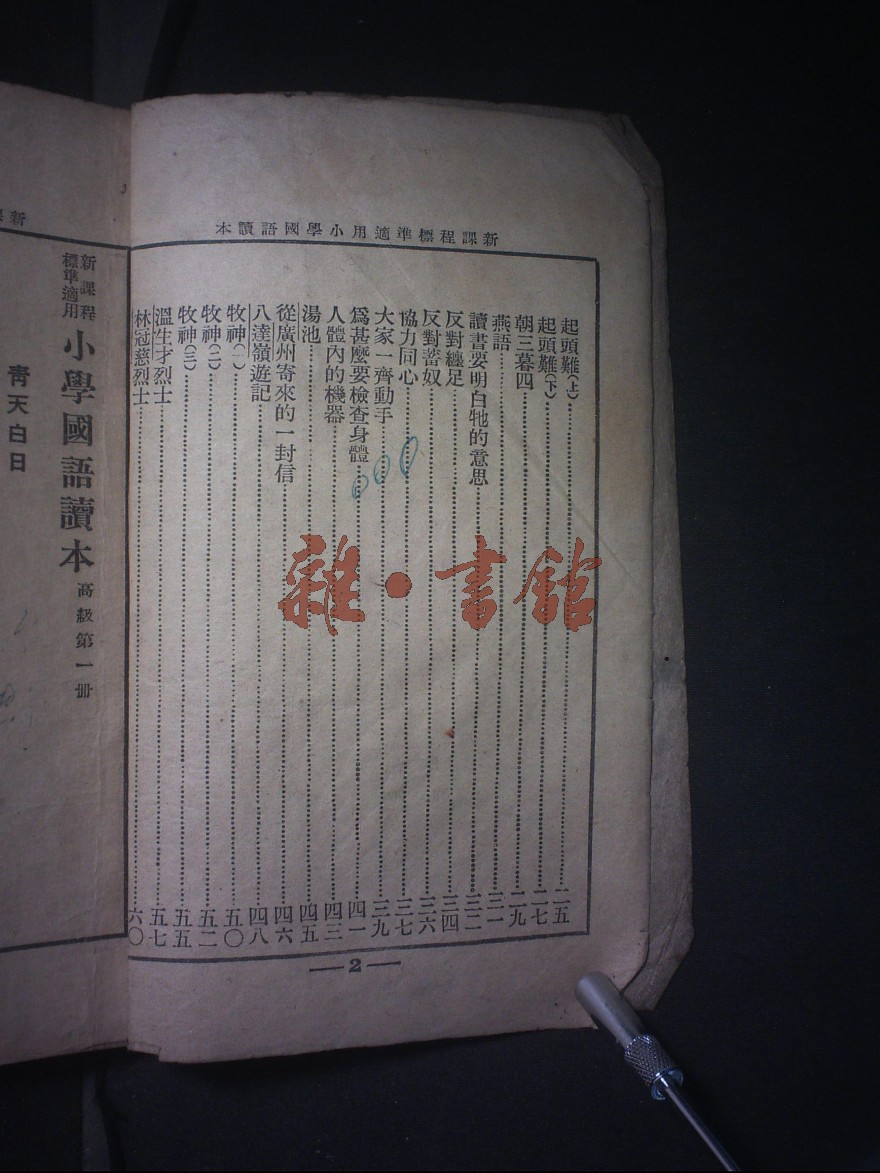 新課程標準適用小學國語讀本
起頭難(上)……二五
起頭難(下)……二七
朝三暮四……二九
燕語……三一
讀書要明白牠的意思……三二
反對纏足……三四
反對蓄奴……三六
協力同心……三七
大家一齊動手……三九
爲甚麼要檢查身體……四一
人體內的機器……四三
湯池……四五
從廣州寄來的一封信……四六
八達嶺遊記……四八
牧神(一)……五〇
牧神(二)……五二
牧神(三)……五五
溫生才烈士……五七
林冠慈烈士……六〇
2
新課程標準適用
小學國語讀本 高級第一册
青天白日
雜·書館